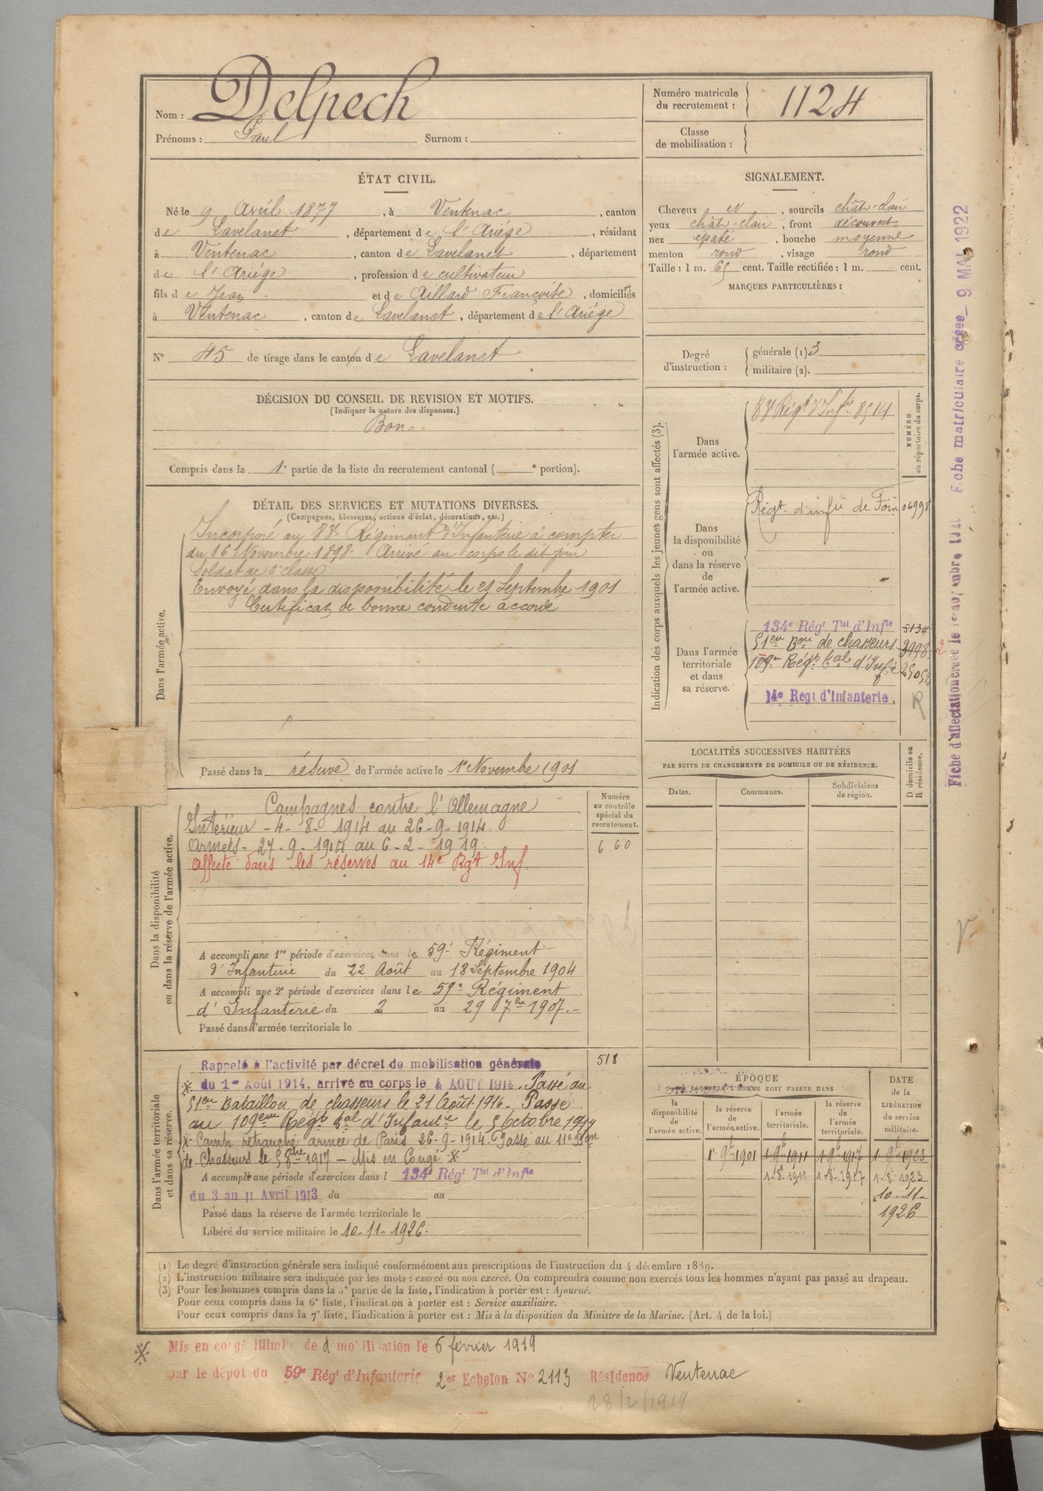 Nom : Delpech
Prénoms : Paul Surnom :
Numéro matricule du recrutement : 1124
Classe de mobilisation :
ÉTAT CIVIL.
Né le 9 Avril 1877, à Ventenac, canton
de Lavelanet, département de l'Ariège, résidant
à Ventenac, canton de Lavelanet, département
de l'Ariège, profession de cultivateur
fils de Jean et de Aillard Françoise, domiciliés
à Ventenac, canton de Lavelanet, département de l'Ariège
N° 45 de tirage dans le canton de Lavelanet
SIGNALEMENT.
Cheveux et, sourcils chât-clair
yeux chât-clair, front découvert
nez épaté, bouche moyenne
menton rond, visage rond
Taille : 1 m. 65 cent. Taille rectifiée : 1 m. cent.
MARQUES PARTICULIÈRES :
Degré d'instruction : générale (1) 3
militaire (2).
DÉCISION DU CONSEIL DE REVISION ET MOTIFS.
(Indiquer la nature des dispenses.)
Bon.
Compris dans la 1e partie de la liste du recrutement cantonal ( e portion).
DÉTAIL DES SERVICES ET MUTATIONS DIVERSES.
(Campagnes, blessures, actions d'éclat, décorations, etc.)
Dans l'armée active.
Incorporé au 83e Régiment d'Infanterie à compter
du 16 Novembre 1898. Arrivé au corps le dit jour
Soldat de 2e classe
Envoyé dans la disponibilité le 21 Septembre 1901
Certificat de bonne conduite accordé
Passé dans la réserve de l'armée active le 1er Novembre 1901
Indication des corps auxquels les jeunes gens sont affectés (3).
NUMÉRO au répertoire du corps.
Dans l'armée active.
83e Régt d'Infie 8514
Dans la disponibilité ou dans la réserve de l'armée active.
Régt d'infie de Foix 06998
Dans l'armée territoriale et dans sa réserve.
134e Régt Tal d'Infie 5134
51eme Bon de chasseurs
109e Régt Tal d'Infie
14e Regt d'Infanterie. R
LOCALITÉS SUCCESSIVES HABITÉES
PAR SUITE DE CHANGEMENTS DE DOMICILE OU DE RÉSIDENCE.
Dates. Communes. Subdivisions de région. D domicile ou R résidence.
Dans la disponibilité ou dans la réserve de l'armée active.
Numéro au contrôle spécial du recrutement.
660
Campagnes contre l'Allemagne
Intérieur - 4-8-1914 au 26-9-1914.
Armées - 27-9-1914 au 6-2-1919.
Affecté dans les réserves au 14e Rgt Inf
A accompli une 1re période d'exercices dans le 59e Régiment
d'Infanterie du 22 Août au 18 Septembre 1904
A accompli une 2e période d'exercices dans le 59e Régiment
d'Infanterie du 2 au 29 7bre 1907.
Passé dans l'armée territoriale le
Dans l'armée territoriale et dans sa réserve.
518
Rappelé à l'activité par décret de mobilisation générale
du 1er Août 1914, arrivé au corps le 4 AOUT 1914. Passé au
51eme Bataillon de chasseurs le 21 Août 1916. Passé
au 109eme Regt Tal d'Infantie le 5 Octobre 1914
x Camp retranché armée de Paris 26-9-1914. Passé au 11e Bon
de Chasseurs le 1917 - Mis en Congé x
A accompli une période d'exercices dans l 134e Régt Tal d'Infie
du 3 au 11 Avril 1913 du au
Passé dans la réserve de l'armée territoriale le
Libéré du service militaire le 10-11-1926.
ÉPOQUE
À LAQUELLE L'HOMME DOIT PASSER DANS
la disponibilité de l'armée active. la réserve de l'armée active. l'armée territoriale. la réserve de l'armée territoriale. DATE de la LIBÉRATION du service militaire.
1er 9bre 1901 1-9bre 1911 1-9bre 1917 1-9bre 1923
1-8-1911 1-8-1917 1-8-1923
10-11-1926
(1) Le degré d'instruction générale sera indiqué conformément aux prescriptions de l'instruction du 4 décembre 1889.
(2) L'instruction militaire sera indiquée par les mots : exercé ou non exercé. On comprendra comme non exercés tous les hommes n'ayant pas passé au drapeau.
(3) Pour les hommes compris dans la 5e partie de la liste, l'indication à porter est : Ajourné.
Pour ceux compris dans la 6e liste, l'indication à porter est : Service auxiliaire.
Pour ceux compris dans la 7e liste, l'indication à porter est : Mis à la disposition du Ministre de la Marine. (Art. 4 de la loi.)
Mis en congé illimité de démobilisation le 6 février 1919
par le dépôt du 59e Régt d'Infanterie 2er Echelon No 2113 Résidence Ventenac
28/2/1919
Fiche matriculaire créée 9 MAI 1922